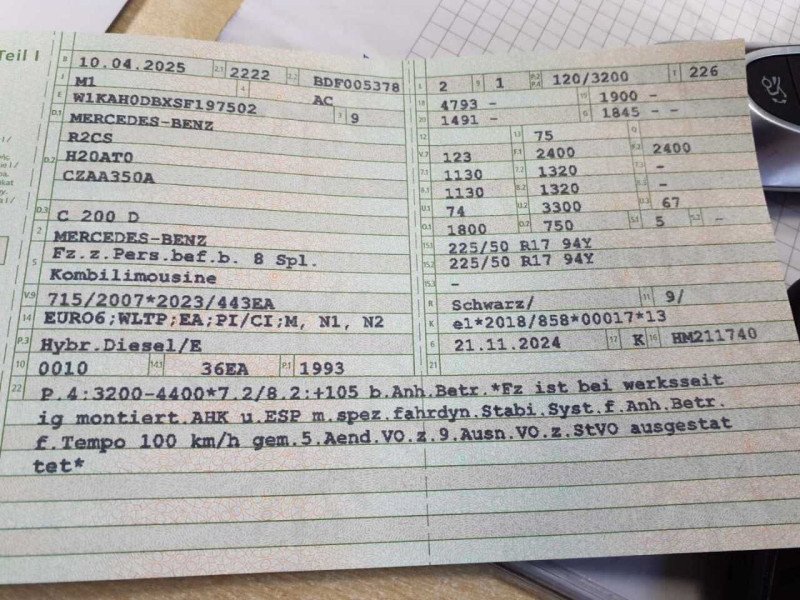 Teil I
B 10.04.2025 2.1 2222 2.2 BDF005378
J M1 4 AC
E W1KAH0DBXSF197502 3 9
D.1 MERCEDES-BENZ
R2CS
D.2 H20AT0
CZAA350A
D.3 C 200 D
2 MERCEDES-BENZ
5 Fz.z.Pers.bef.b. 8 Spl.
Kombilimousine
V.9 715/2007*2023/443EA
14 EURO6;WLTP;EA;PI/CI;M, N1, N2
P.3 Hybr.Diesel/E
10 0010 14.1 36EA P.1 1993
L 2 9 1 P.2 P.4 120/3200 T 226
18 4793 - 19 1900 -
20 1491 - G 1845 - -
12 13 75 Q
V.7 123 F.1 2400 F.2 2400
7.1 1130 7.2 1320 7.3 -
8.1 1130 8.2 1320 8.3 -
U.1 74 U.2 3300 U.3 67
O.1 1800 O.2 750 S.1 5 S.2 -
15.1 225/50 R17 94Y
15.2 225/50 R17 94Y
15.3 -
R Schwarz/ 11 9/
K e1*2018/858*00017*13
6 21.11.2024 17 K 16 HM211740
21
22 P.4:3200-4400*7.2/8.2:+105 b.Anh.Betr.*Fz ist bei werksseit
ig montiert.AHK u.ESP m.spez.fahrdyn.Stabi.Syst.f.Anh.Betr.
f.Tempo 100 km/h gem.5.Aend.VO.z.9.Ausn.VO.z.StVO ausgestat
tet*